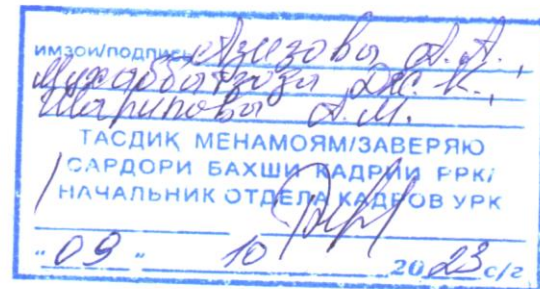 ИМЗОИ/ПОДПИСЬ Азизовы А.А.,
Мухаббатзода Дж К.,
Шарипова А.М.
ТАСДИҚ МЕНАМОЯМ/ЗАВЕРЯЮ
САРДОРИ БАХШИ КАДРИИ РРК/
НАЧАЛЬНИК ОТДЕЛА КАДРОВ УРК
"09" 10 2023 с/г